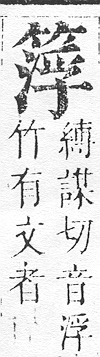 縛謀切音浮
竹有文者